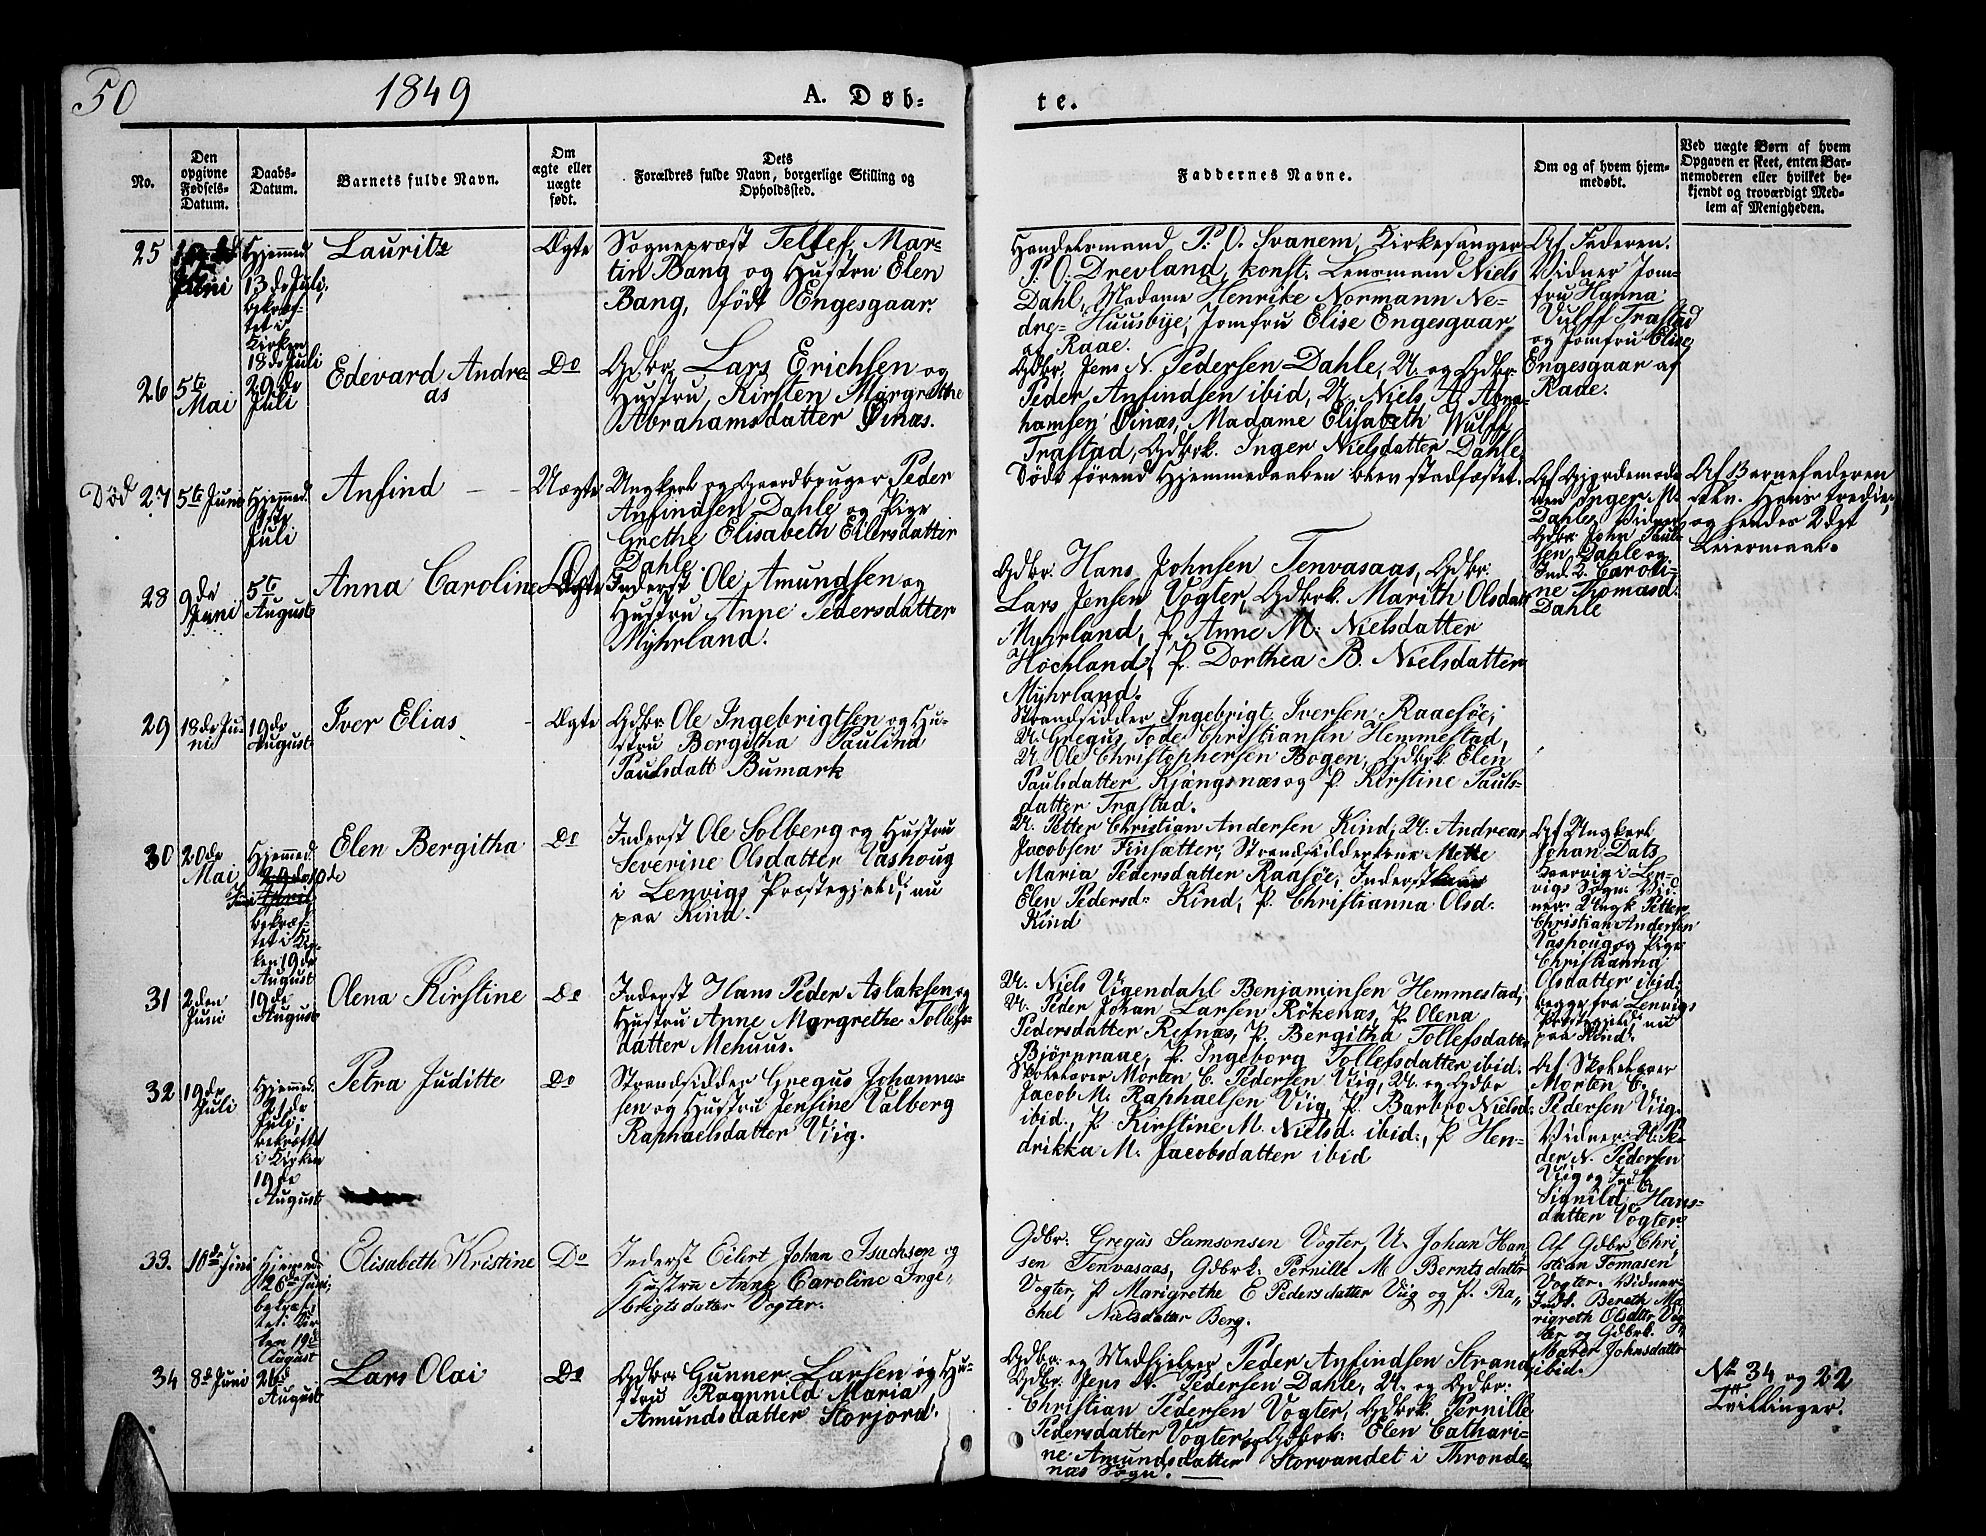 50
1849
A. Døb-
te.
No.
Den opgivne Fødsels-Datum.
Daabs-Datum.
Barnets fulde Navn.
Om ægte eller uægte født.
Dets
Forældres fulde Navn, borgerlige Stilling og Opholdssted.
Faddernes Navne.
Om og af hvem hjem-
medøbt.
Ved uægte Børn af hvem
Opgaven er skeet, enten Bar-
nemoderen eller hvilket be-
kjendt og troværdigt Med-
lem af Menigheden.
25
Juni
Hjemmed.
13de Juli,
bekræf-
tet i
Kirken
18de Juli
Lauritz
Ægte
Sognepræst Tellef Mar-
tin Bang og Hustru Elen
Bang, født Engesgaar.
Handelsmand P. O. Svanem, Kirkesanger
P. O. Drevland, konst. Lensmand Niels
Dahl, Madame Henrike Normann Ne-
dre-Huusbye, Jomfru Elise Engesgaar
af Raae.
Af Faderen.
Vidner Jom-
fru Hanna
Vulff Trastad
og Jomfru Elise
Engesgaar af
Raae.
26
5te
Mai
29de
Juli
Edevard Andre-
as
Do
Gdbr. Lars Erichsen og
Hustru Kirsten Margrethe
Abrahamsdatter Øinæs.
Gdbr. Jens N. Pedersen Dahle, U. og Gdbr.
Peder Anfindsen ibid, U. Niels A. Abra-
hamsen Øinæs, Madame Elisabeth Wulff
Trastad, Gdbrk. Inger Nielsdatter Dahle
Død 27
5te Juni
Hjemmed.
Juli
Anfind
Uægte
Ungkarl og Gaardbruger Peder
Anfindsen Dahle og Pige
Grethe Elisabeth Eilersdatter
Dahle.
Døde førend Hjemmedaaben blev stadfæstet.
Af Gjordemode-
ren Inger M.
Dahle, Vidner
Gdbr. John Paul-
sen Dahle og
Ind. K. Caroli-
ne Thomasd.
Dahle
Af Barnefaderen
selv. Hans tredie,
og hendes 2det
Leiermaal.
28
9de
Juni
5te
August
Anna Caroline
Ægte
Inderst Ole Amundsen og
Hustru Anne Pedersdatter
Myhrland.
Gdbr. Hans Johnsen Tenvasaas, Gdbr.
Lars Jensen Vogter, Gdbrk. Marith Olsdatt
Myhrland, P. Anne M. Nielsdatter
Hochland, P. Dorthea B. Nielsdatter
Myhrland.
29
18de Ju-
ni
19de
August
Iver Elias
Ægte
Gdbr. Ole Ingebrigtsen og Hu-
stru Bergitha Paulina
Paulsdatt Bumark
Strandsidder Ingebrigt Iversen Raaesøe,
U. Gregus Tode Christiansen Hemmestad,
U. Ole Christophersen Bogen, Gdbrk. Elen
Paulsdatter Kjøngsnæs og P. Kirstine Pauls-
datter Trastad.
30
20de
Mai
Hjemmed.
bekræf-
tet i Kir-
ken 19de
August
Elen Bergitha
Do
Inderst Ole Solberg og Hustru
Severine Olsdatter Vashoug
i Lenvigs Præstegjeld, nu
paa Kind.
U. Petter Christian Andersen Kind, U. Andreas
Jacobsen Finsætter, Strandsidderkone Mette
Maria Pedersdatter Raaesøe, Inderst
Elen Pedersd. Kind, P. Christianna Olsd.
Kind
Af Ungkarl
Johan Dats
Kvarvig i Len-
vigs Sogn. Vid-
ner: Ungk. Petter
Christian Andersen
Vashoug og Pige
Christianna
Olsdatter ibid.
begge fra Lenvigs
Præstegjeld, nu
paa Kind.
31
2den
Juni
19de
August
Olena Kirstine
Do
Inderst Hans Peder Aslaksen og
Hustru Anne Margrethe Tollefs-
datter Mehuus.
U. Niels Vigendahl Benjaminsen Hemmestad,
U. Peder Johan Larsen Rökenæs, P. Olena
Pedersdatter Refnæs, P. Bergitha Tollefsdatter
Björnraae, P. Ingeborg Tollefsdatter ibid.
32
19de
Juli
Hjemmed.
21de
Juli,
bekræftet
i Kirken
19de
August
Petra Juditte
Do
Strandsidder Gregus Johannes-
sen og Hustru Jensine Valberg
Raphaelsdatter Viig.
Skolelærer Morten C. Pedersen Viig, U. og Gdbr
Jacob M. Raphaelsen Viig, P. Barbro Nielsd.
ibid., P. Kirstine M. Nielsd. ibid., P. Hen-
drikka M. Jacobsdatter ibid
Af Skolelærer
Morten C.
Pedersen Viig.
Vidner: U. Pe-
der N. Pedersen
Viig og Indk.
Signild Hans-
datter Vogter.
33.
10de Juni
Hjemmed.
26de Juni,
bekræf-
tet i Kir-
ken 19de
August
Elisabeth Kristine
Do
Inderst Eilert Johan Isachsen og
Hustru Anne Caroline Inge-
brigtsdatter Vogter.
Gdbr. Gregus Samsonsen Vogter, U. Johan Han
sen Tenvasaas, Gdbrk. Pernille M Berntsdatter
Vogter, P Marigrethe E Pedersdatter Viig og P. Ra-
chel Nielsdatter Berg.
Af Gdbr Chri
stian Tomasen
Vogter. Vidner
Indk. Bereth Ma
rigreth Olsdatter Vog
ter og Gdbrk.
Maren Johnsdatter
ibid.
34
8de Juni
26de
August
Lars Olai
Do
Gdbr. Gunner Larsen og Hu-
stru Ragnnild Maria
Amundsdatter Storjord.
Gdbr. og Medhjelper Peder Anfindsen Strand,
Gdbr. Jens N. Pedersen Dahle, U. og Gdbr.
Christian Pedersen Vogter, Gdbrk. Pernille
Pedersdatter Vogter og Gdbrk. Elen Cathari-
ne Amundsdatter Storvandet i Thronde-
næs Sogn.
No 34 og 22
Tvillinger.